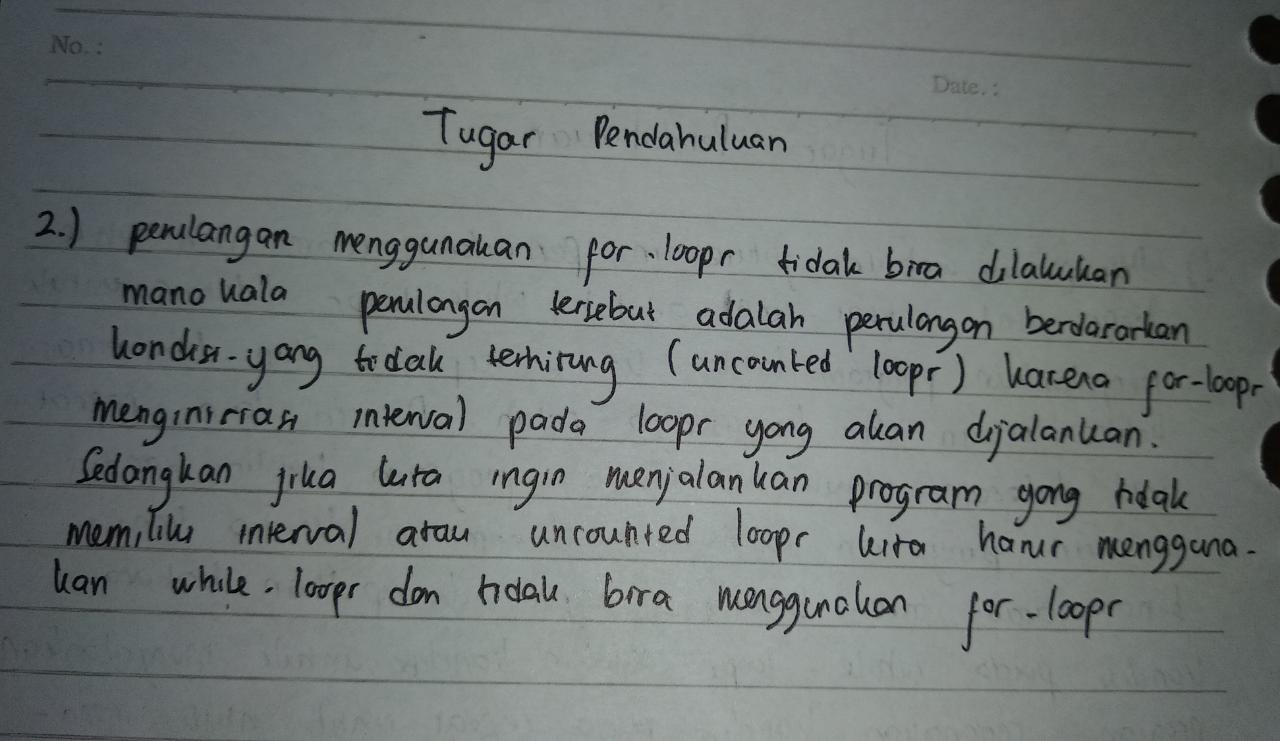 No.:
Date.:
Tugas Pendahuluan
2.) perulangan menggunakan for-loops tidak bisa dilakukan
mana kala perulangan tersebut adalah perulangan berdasarkan
kondisi-yang tidak terhitung (uncounted loops) karena for-loops
menginisiasi interval pada loops yang akan dijalankan.
Sedangkan jika kita ingin menjalankan program yang tidak
memiliki interval atau uncounted loops kita harus mengguna-
kan while-loops dan tidak bisa menggunakan for-loops